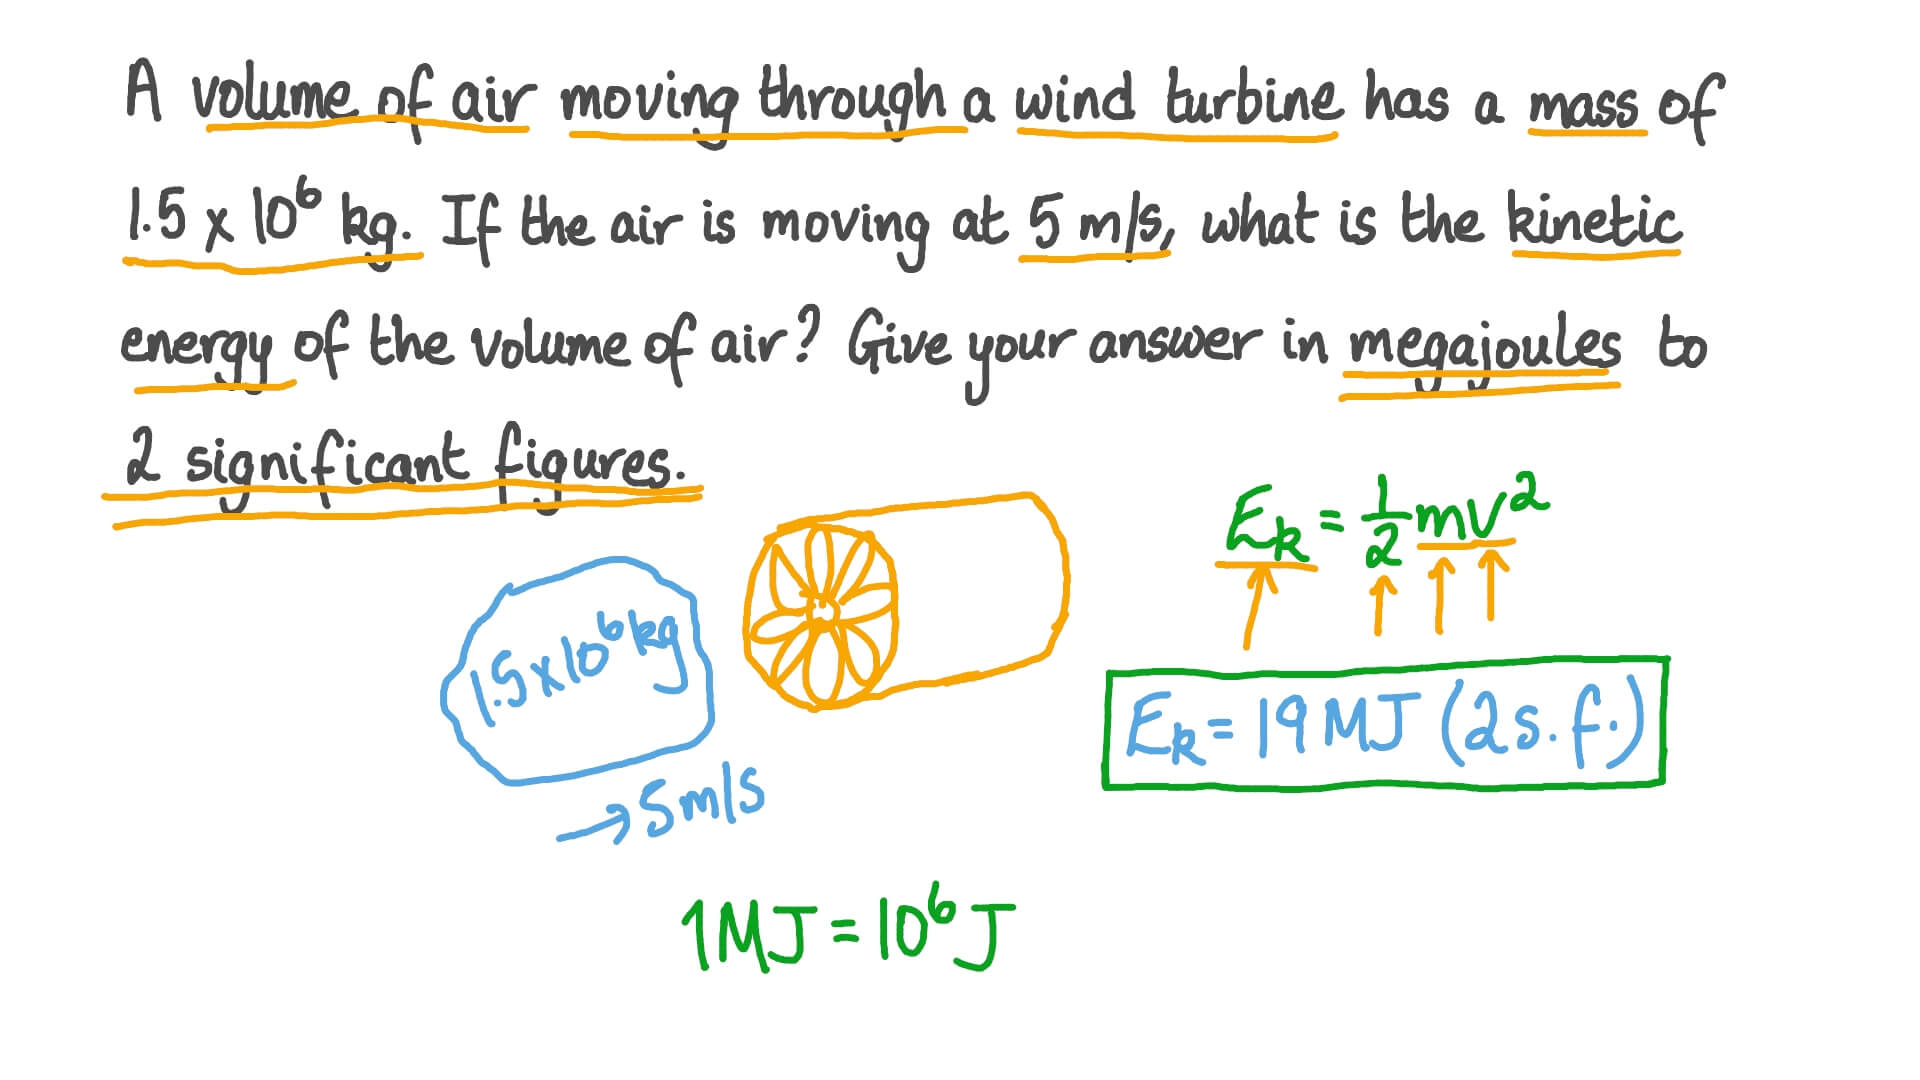 A volume of air moving through a wind turbine has a mass of
1.5 x 10⁶ kg. If the air is moving at 5 m/s, what is the kinetic
energy of the volume of air? Give your answer in megajoules to
2 significant figures.
Eₖ = ½mv²
1.5 x 10⁶ kg
Eₖ = 19 MJ (2 s.f.)
→ 5 m/s
1 MJ = 10⁶ J